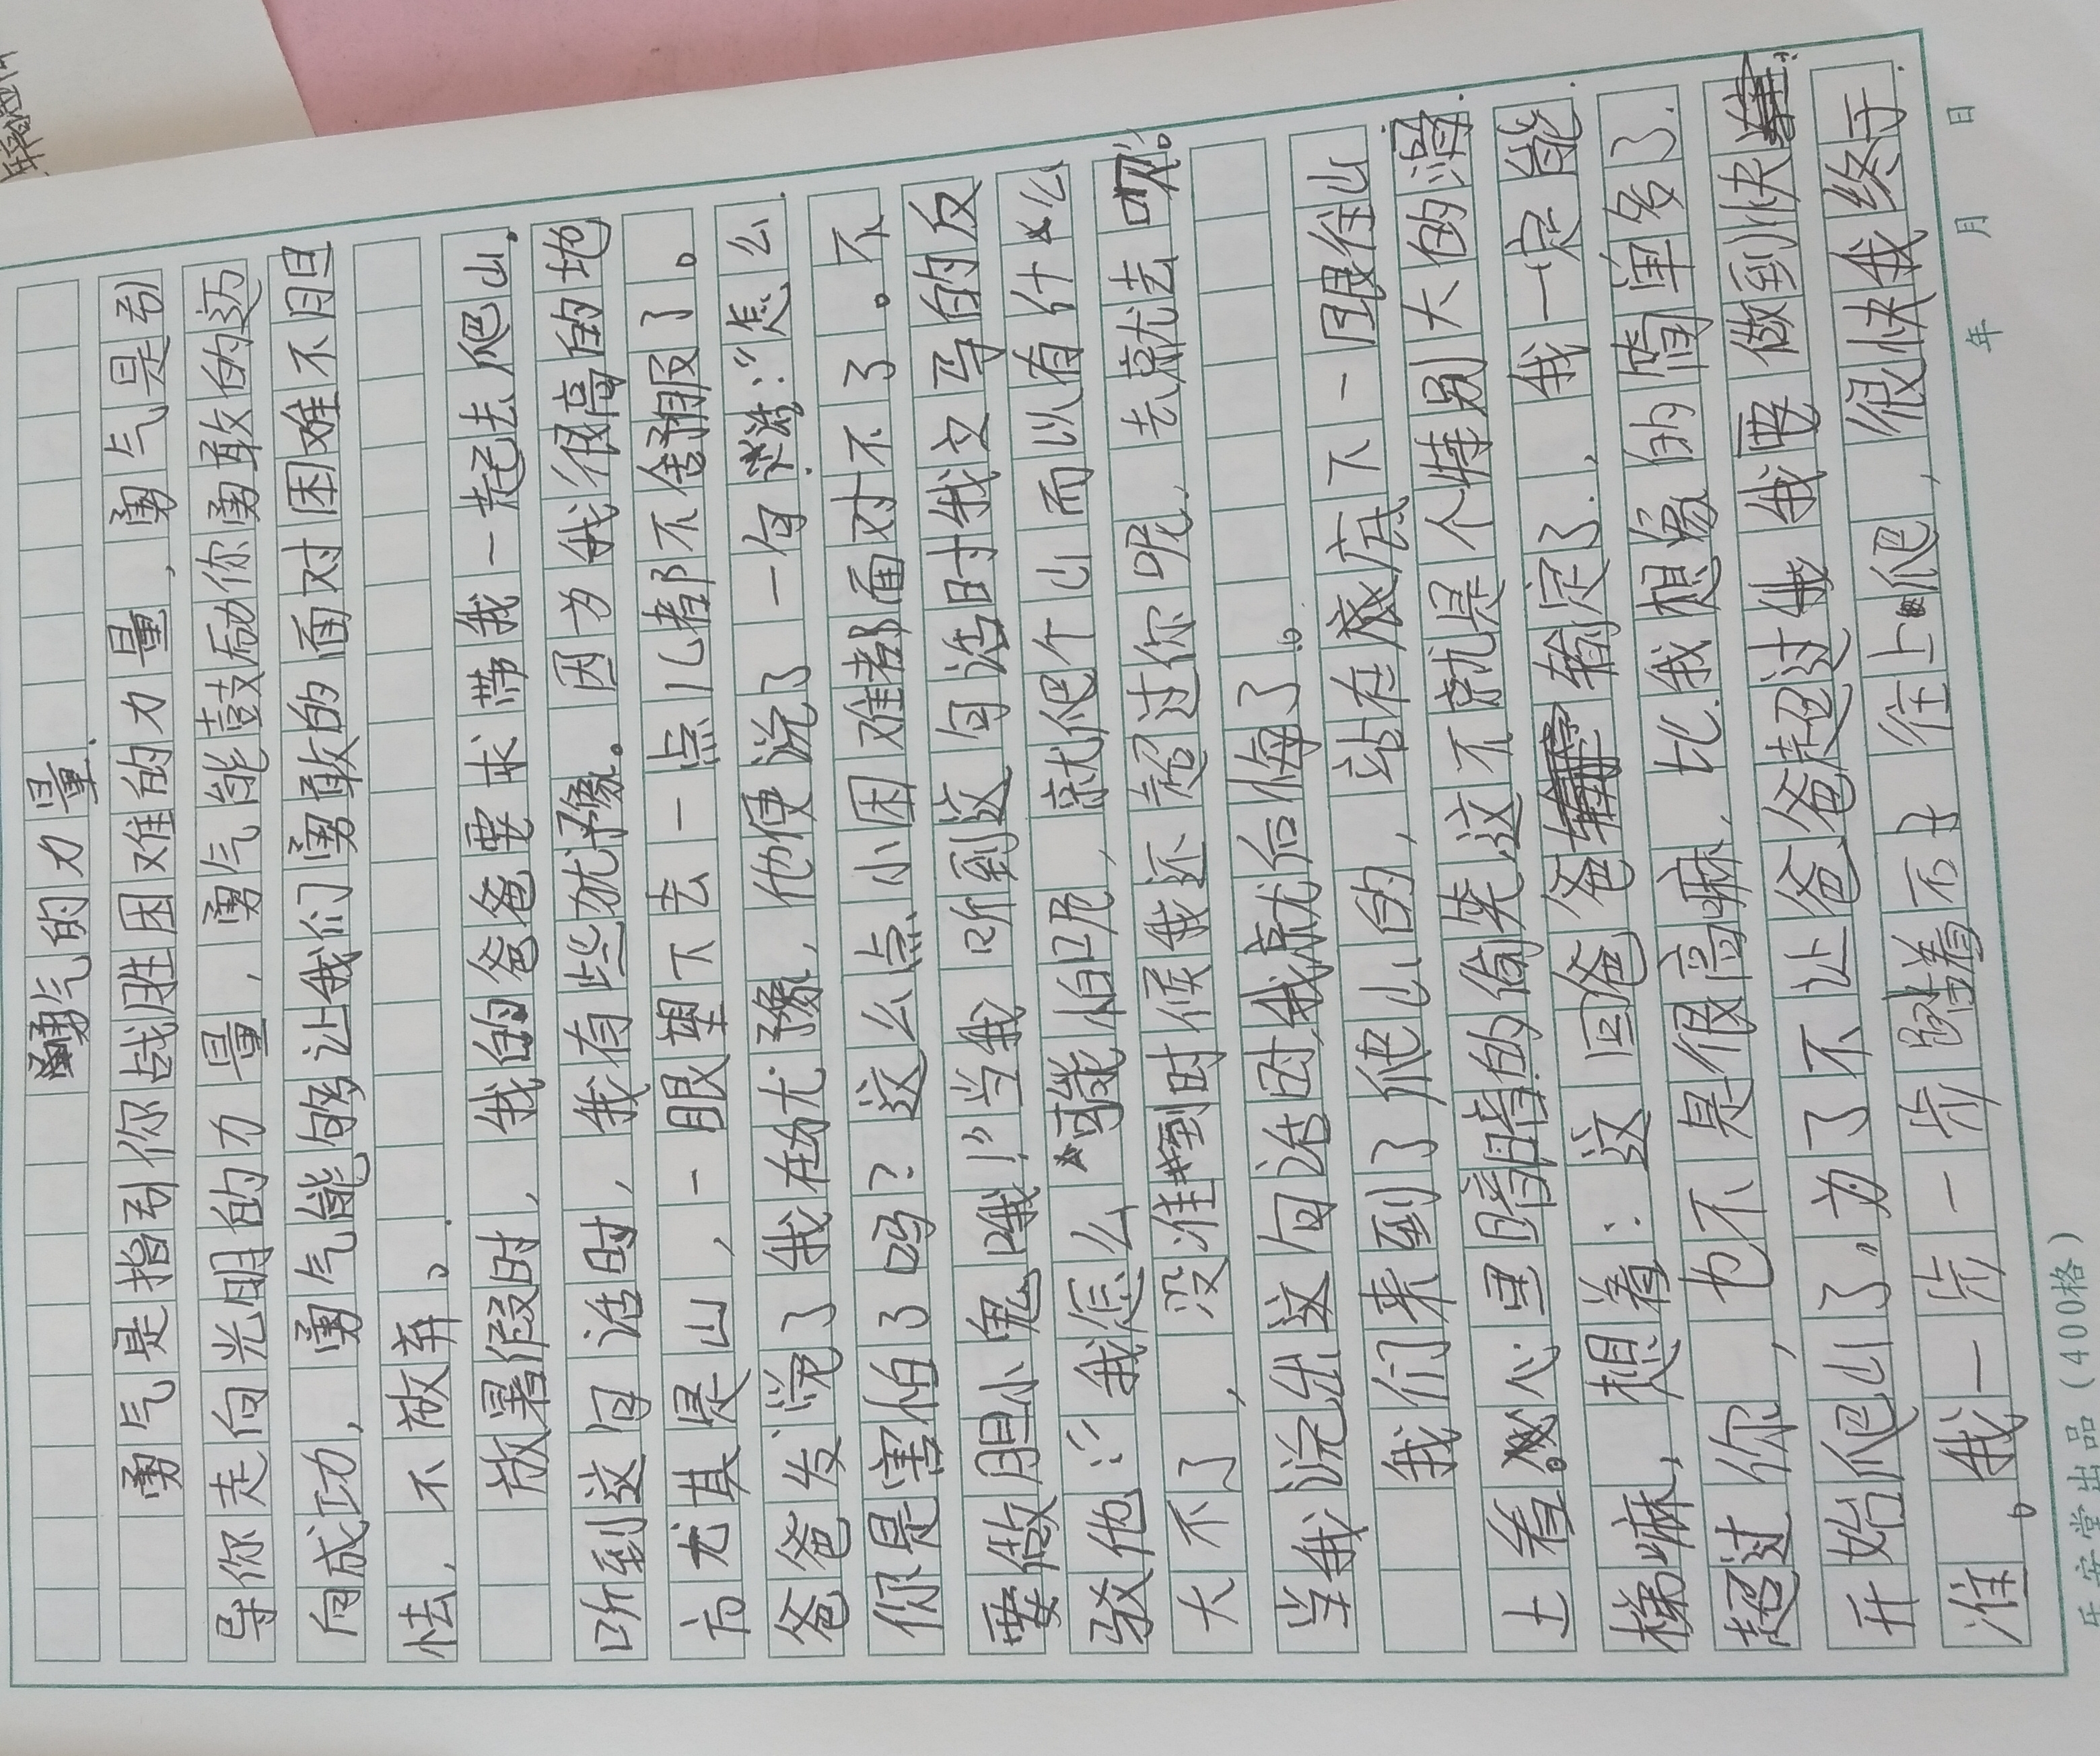 勇气的力量
勇气是指引你战胜困难的力量，勇气是引
导你走向光明的力量，勇气能鼓励你勇敢的迈
向成功，勇气能够让我们勇敢的面对困难不胆
怯，不放弃。
放暑假时，我的爸爸要求带我一起去爬山。
听到这句话时，我有些犹豫。因为我很高的地
方尤其是山，一眼望下去一点儿都不舍服了。
爸爸发觉了我在犹豫，他便说了一句：“怎么
你是害怕了吗？这么点小困难都面对不了。不
要做胆小鬼哦！”当我听到这句话时我立马的反
驳他：“我怎么可能怕呢，就爬个山而以有什么
大不了，没准到时候我还超过你呢，去就去呗”。
当我说出这句话时我就后悔了。
我们来到了爬山的，站在底下一眼往山
上看。心里暗暗的偷笑这不就是个特别大的滑
梯嘛，想着：这回爸爸输定了，我一定能
超过你，也不是很高嘛，比我想象的简单多了.
开始爬山了，为了不让爸爸超过我我要做到快
准。我一步一步踩着石子往上爬，很快我终于
年 月 日
乐安堂出品（400格）